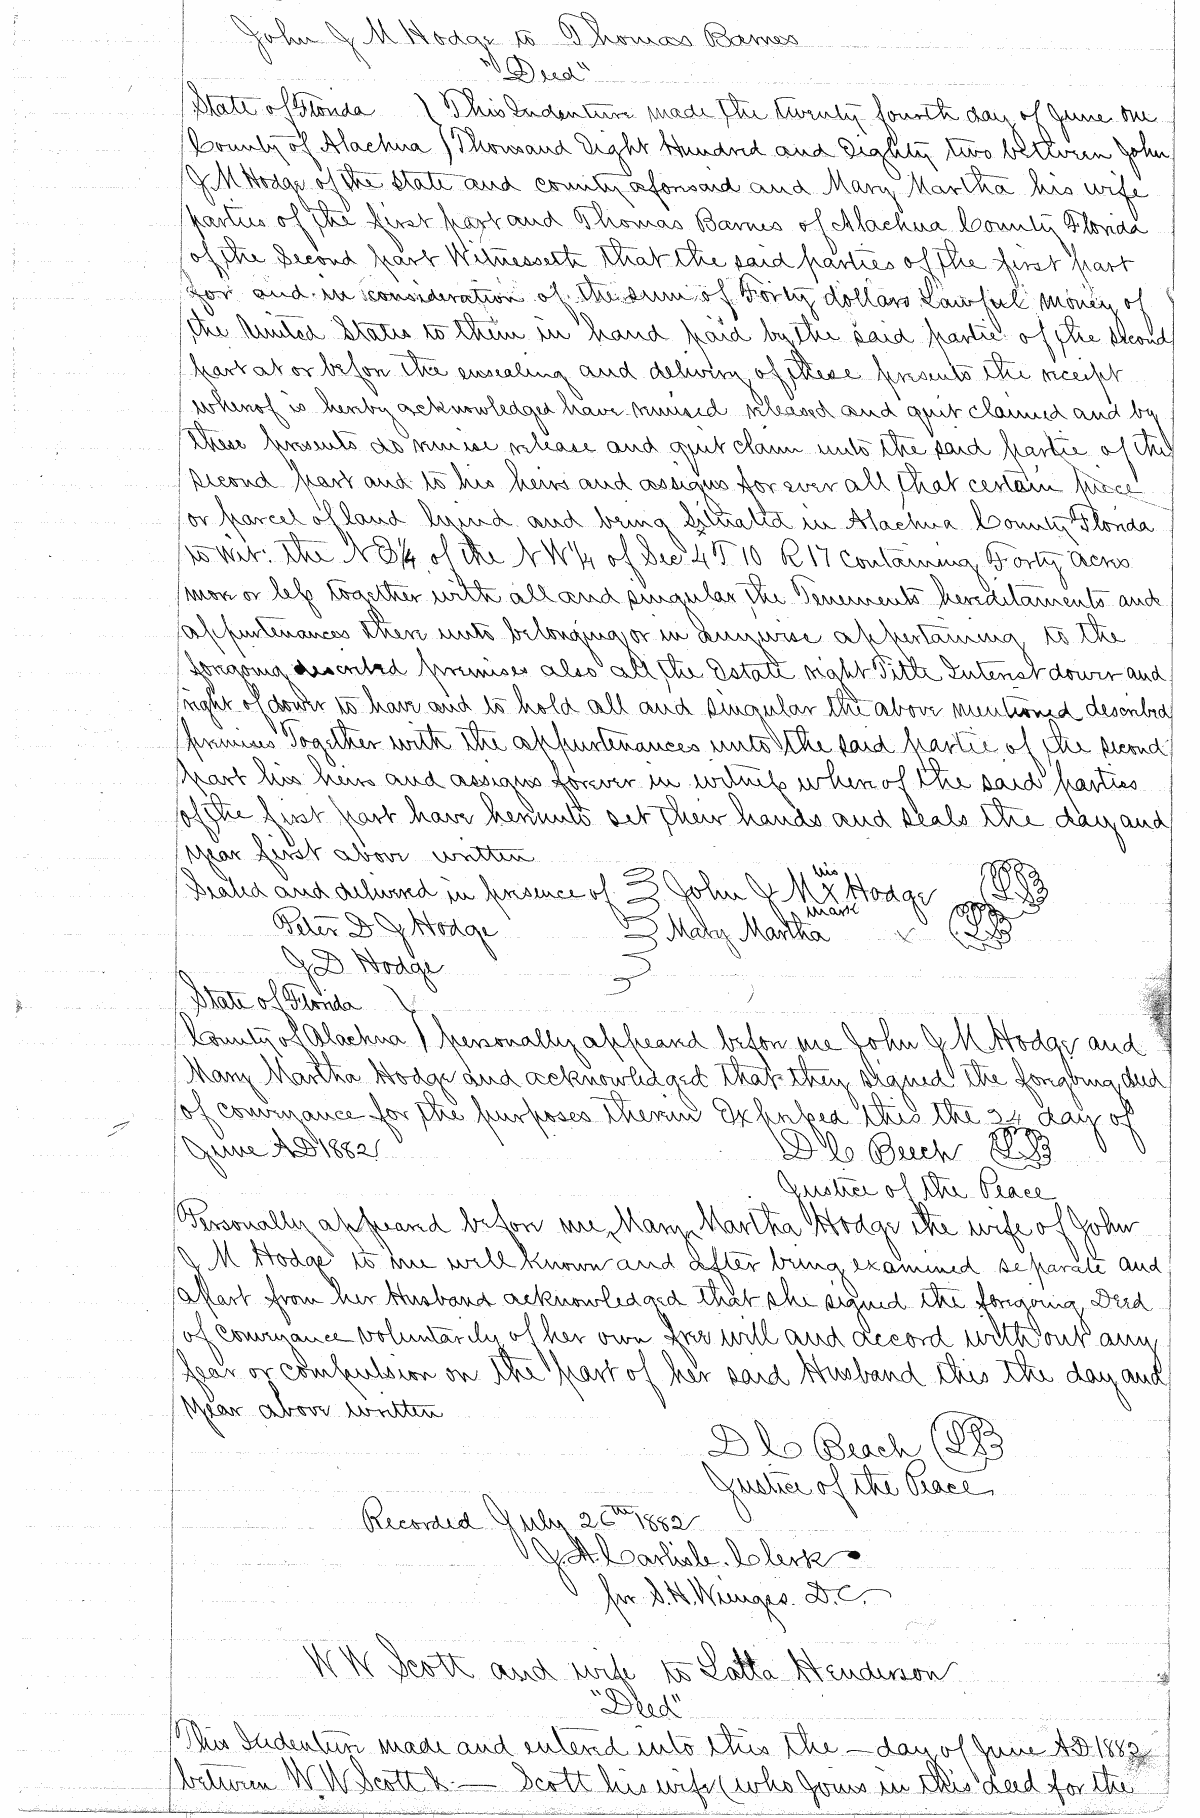 John J M Hodge to Thomas Barnes
"Deed"
State of Florida } This Indenture made the twenty fourth day of June one
County of Alachua } Thousand Eight Hundred and Eighty two between John
J M Hodge of the State and county aforesaid and Mary Martha his wife
parties of the first part and Thomas Barnes of Alachua County Florida
of the Second part Witnesseth that the said parties of the first part
for and in consideration of the sum of Forty dollars Lawful money of
the United States to them in hand paid by the said partie of the second
part at or before the ensealing and delivery of these presents the receipt
whereof is hereby acknowledged have remised released and quit claimed and by
these presents do remise release and quit claim unto the said partie of the
second part and to his heirs and assigns for ever all that certain piece
or parcel of land lyind and being Situated in Alachua County Florida
to wit: the N E¼ of the N W¼ of Sec 4 T 10 R 17 containing Forty acres
more or less together with all and singular the Tenements hereditaments and
appurtenances there unto belonging or in anywise appertaining to the
foregoing described premises also all the Estate right Title Interest dower and
right of dower to have and to hold all and singular the above mentioned described
premises Together with the appurtenances unto the said partie of the second
part his heirs and assigns forever in witness where of the said parties
of the first part have hereunto set their hands and seals the day and
year first above written
Sealed and delivered in presence of John J M his x mark Hodge
Peter D J Hodge Mary Martha x
J D Hodge
State of Florida }
County of Alachua } personally appeared before me John J M Hodge and
Mary Martha Hodge and acknowledged that they signed the foregoing deed
of conveyance for the purposes therein Expressed this the 24 day of
June AD 1882 D C Beech
Justice of the Peace
Personally appeared before me, Mary Martha Hodge the wife of John
J M Hodge to me well known and after being examined separate and
apart from her Husband acknowledged that she signed the foregoing Deed
of conveyance voluntarily of her own free will and accord without any
fear or compulsion on the part of her said Husband this the day and
year above written
D C Beach
Justice of the Peace
Recorded July 26th 1882
J. A. Carlisle. Clerk
for S. H. Wienges. D. C.
W W Scott and wife to Latta Henderson
"Deed"
This Indenture made and entered into this the — day of June A D 1882
between W W Scott & — Scott his wife (who Joins in this deed for the